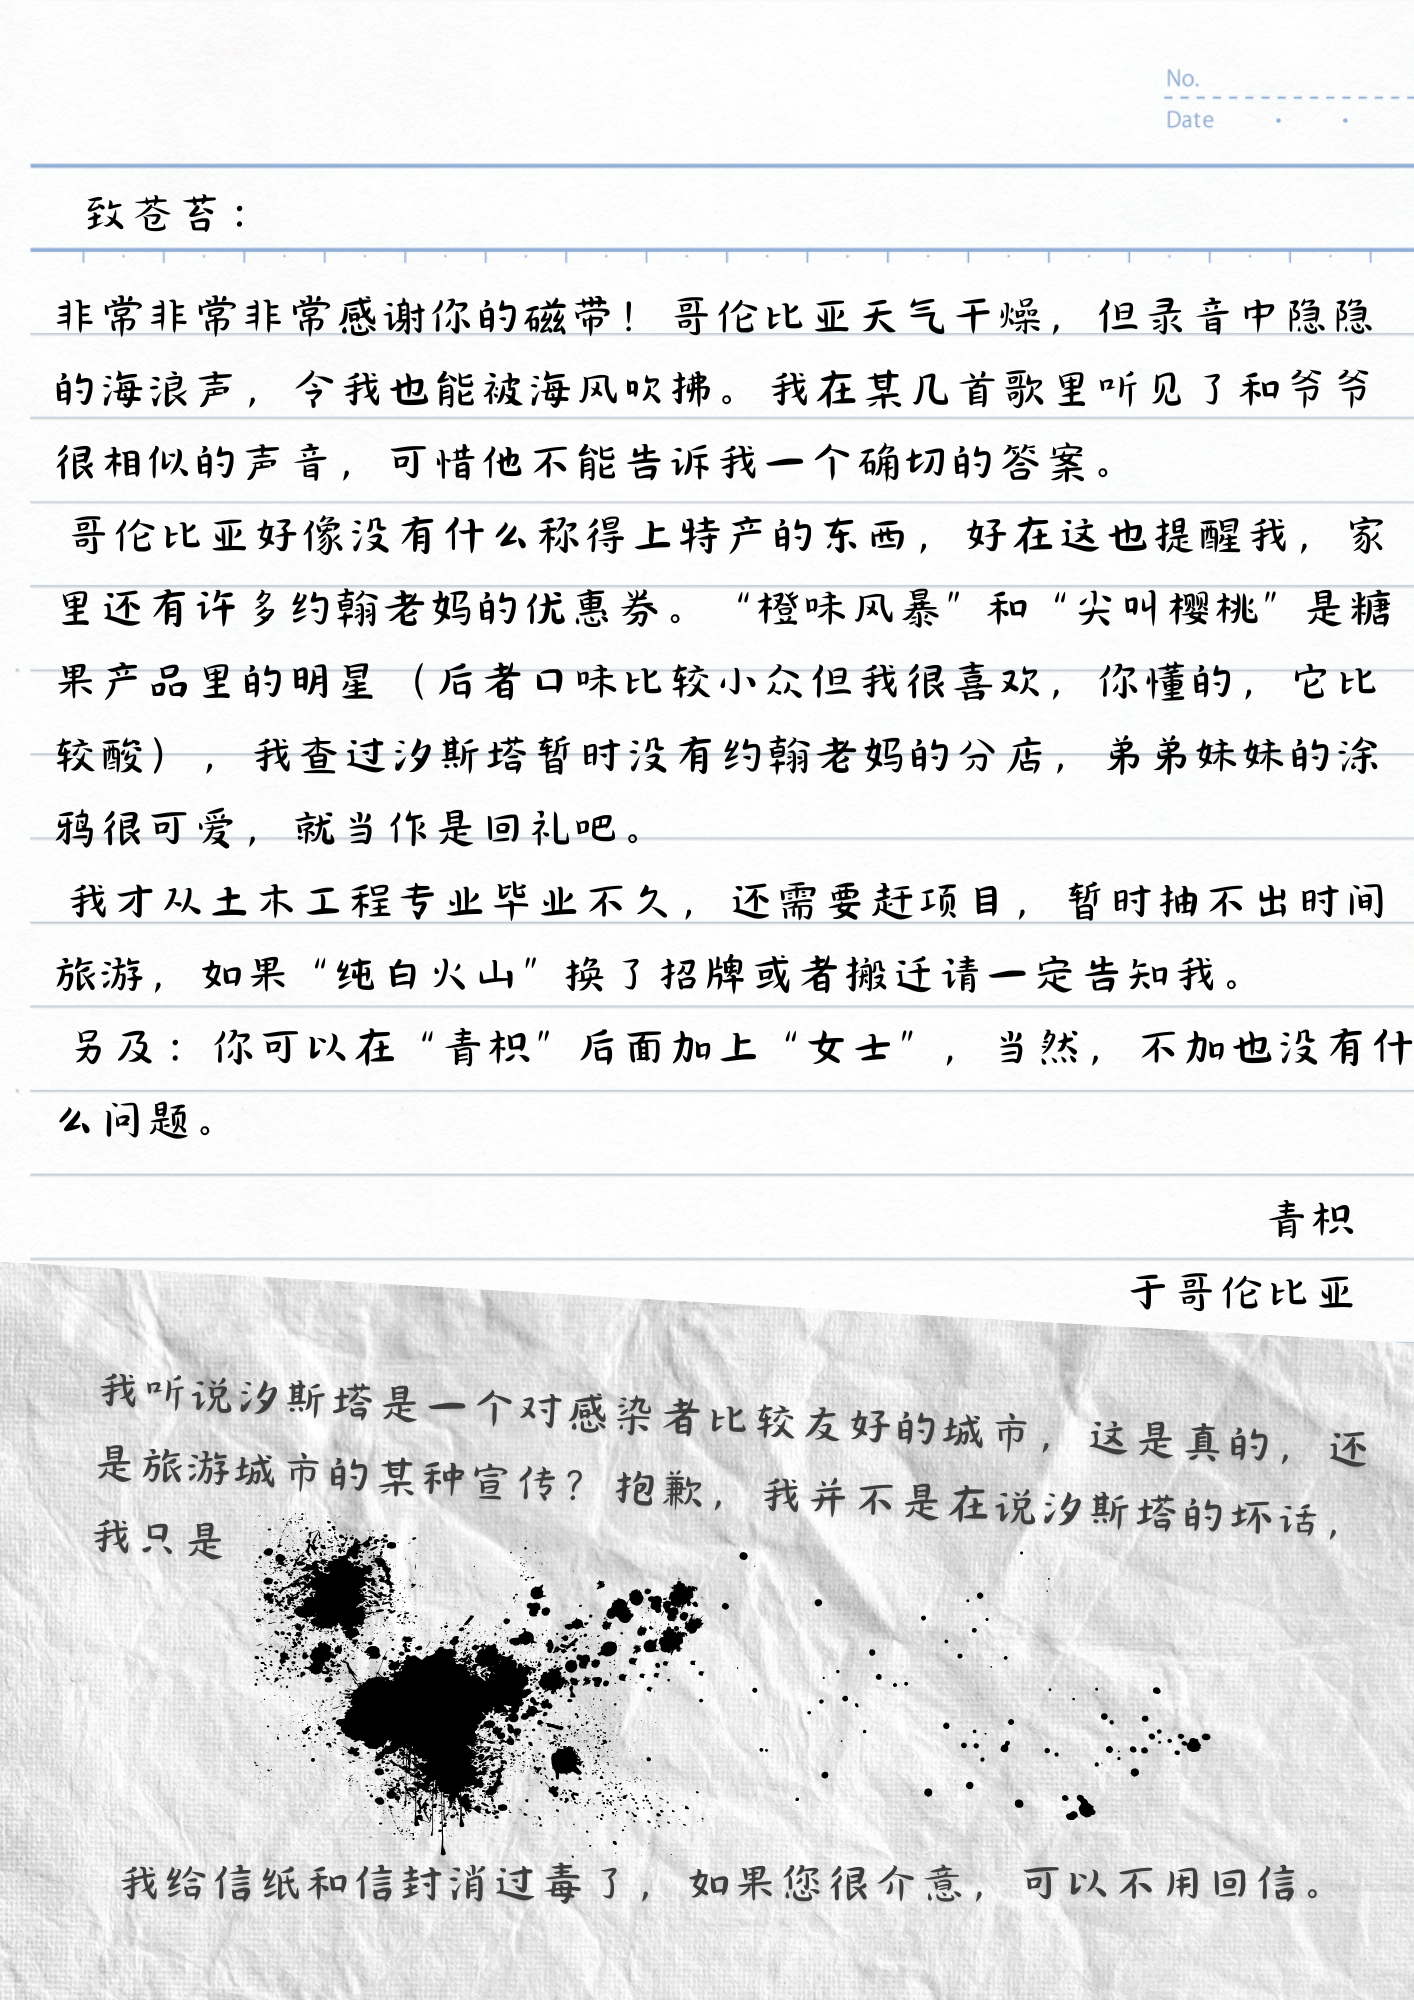 No.
Date
致苍苔：
非常非常非常感谢你的磁带！哥伦比亚天气干燥，但录音中隐隐
的海浪声，令我也能被海风吹拂。我在某几首歌里听见了和爷爷
很相似的声音，可惜他不能告诉我一个确切的答案。
哥伦比亚好像没有什么称得上特产的东西，好在这也提醒我，家
里还有许多约翰老妈的优惠券。“橙味风暴”和“尖叫樱桃”是糖
果产品里的明星（后者口味比较小众但我很喜欢，你懂的，它比
较酸），我查过汐斯塔暂时没有约翰老妈的分店，弟弟妹妹的涂
鸦很可爱，就当作是回礼吧。
我才从土木工程专业毕业不久，还需要赶项目，暂时抽不出时间
旅游，如果“纯白火山”换了招牌或者搬迁请一定告知我。
另及：你可以在“青枳”后面加上“女士”，当然，不加也没有什
么问题。
青枳
于哥伦比亚
我听说汐斯塔是一个对感染者比较友好的城市，这是真的，还
是旅游城市的某种宣传？抱歉，我并不是在说汐斯塔的坏话，
我只是
我给信纸和信封消过毒了，如果您很介意，可以不用回信。